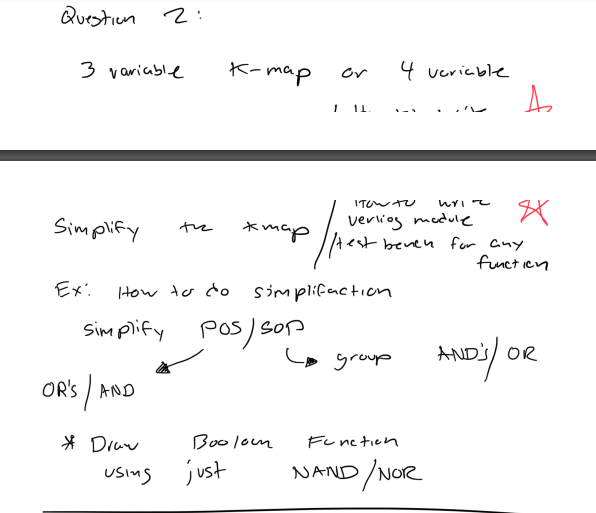 Question 2:
3 variable K-map or 4 variable
Simplify the kmap / How to write
verliog module
/test bench for any
function
Ex: How to do simplifaction
simplify POS/SOP
group AND's/OR
OR's/AND
* Draw Boolean Function
using just NAND/NOR